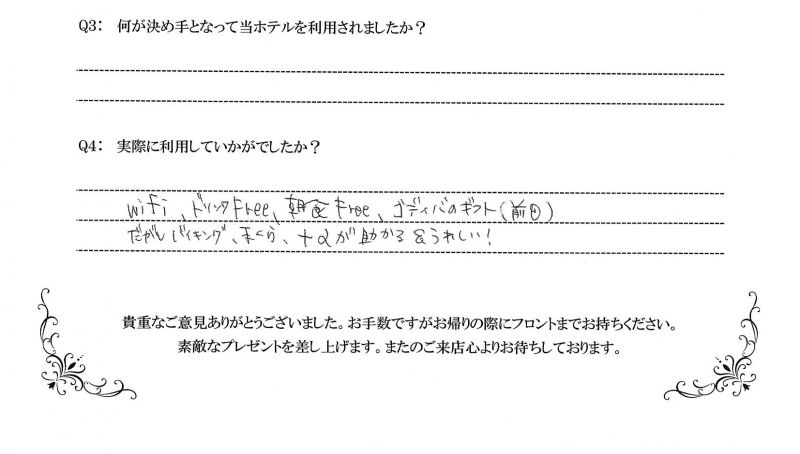 Q3： 何が決め手となって当ホテルを利用されましたか？
Q4： 実際に利用していかがでしたか？
wifi、ドリンクFree、朝食Free、ゴディバのギフト(前回)
だがしバイキング、まくら、+αが助かる&うれしい！
貴重なご意見ありがとうございました。お手数ですがお帰りの際にフロントまでお持ちください。
素敵なプレゼントを差し上げます。またのご来店心よりお待ちしております。